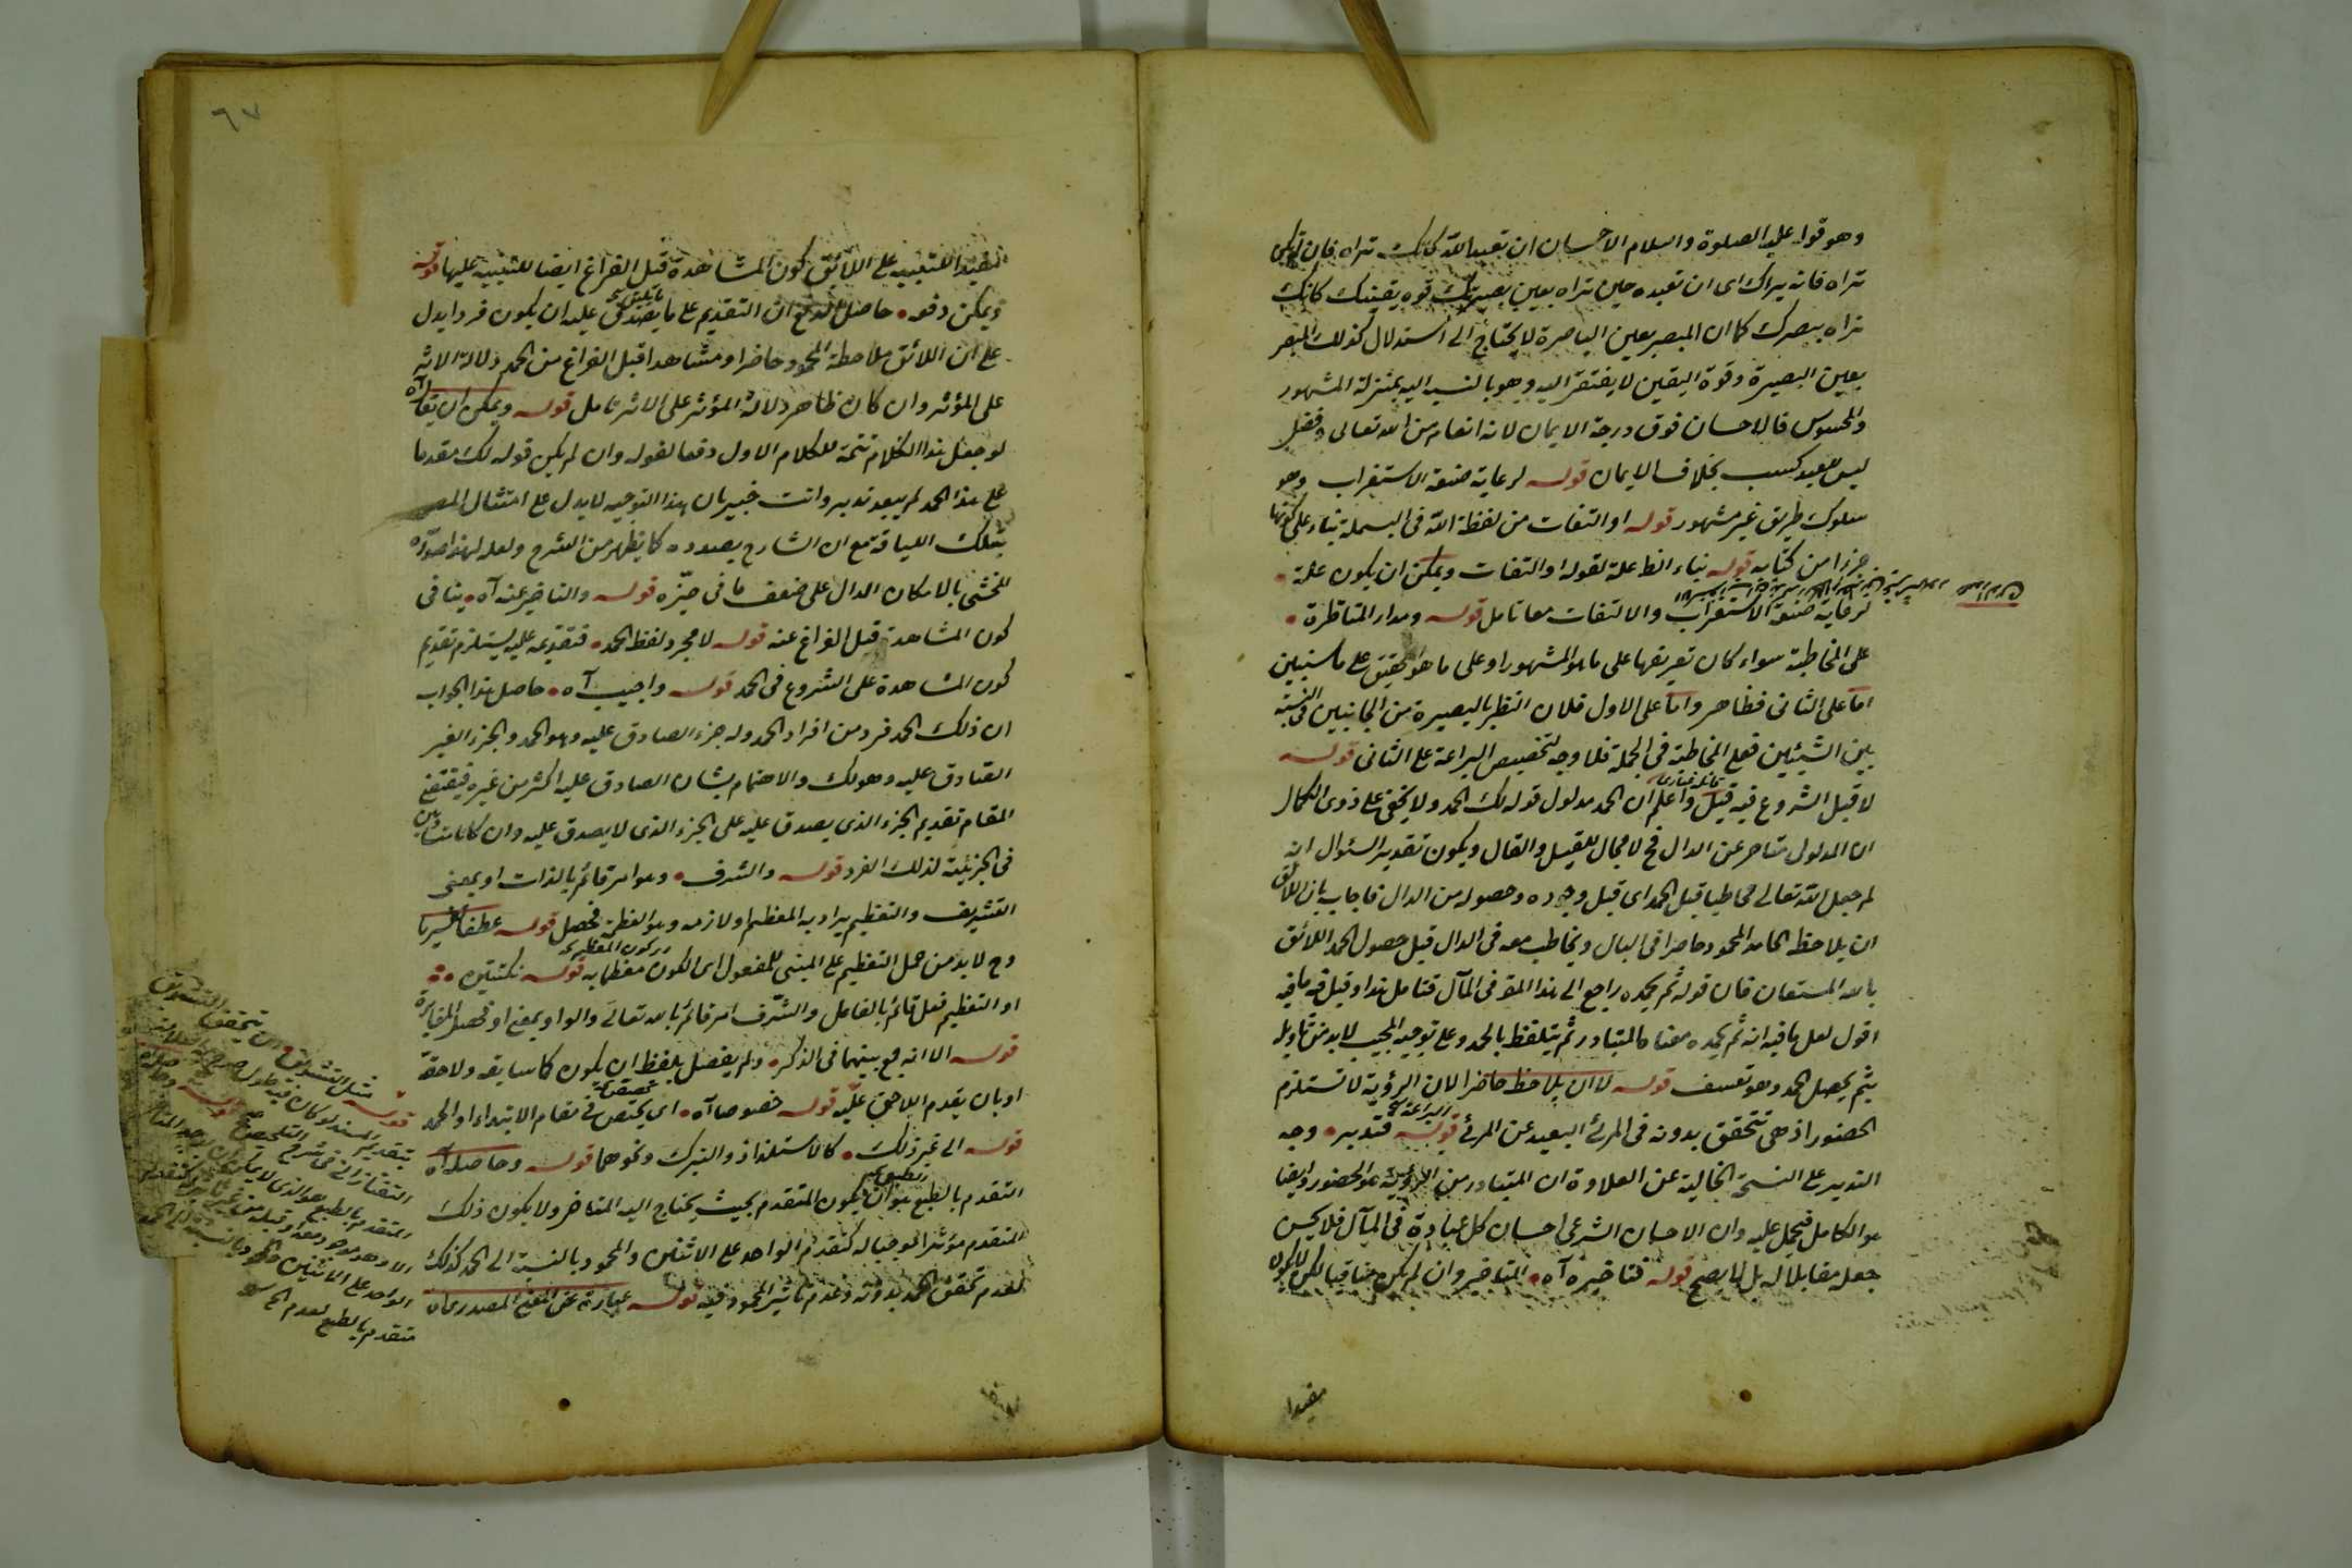 وهو قوله عليه الصلوة والسلام الاحسان ان تعبد الله كانك تراه فان لم تكن
تراه فانه يراك اى ان تعبده حين تراه بعين بصيرتك وقوة يقينك كانك
تراه ببصرك كما ان المبصر بعين الباصرة لا يحتاج الى استدلال كذلك المبصر
بعين البصيرة وقوة اليقين لا يفتقر اليه وهو بالنسبة اليه بمنزلة المشهور
والمحسوس فالاحسان فوق درجة الايمان لانه انعام من الله تعالى وفضل
ليس للعبد كسب بخلاف الايمان قوله لرعاية صنعة الاستغراب وهو
سلوك طريق غير مشهور قوله او التفات من لفظة الله فى البسملة بناء على كونها
جزءا من كتابه قوله بناء الظ علة لقوله او التفات ويمكن ان يكون علة
لرعاية صنعة الاستغراب والالتفات معا تامل قوله ومدار المناظرة
على المخاطبة سواء كان تعريفها على ما هو المشهور او على ما هو تحقيق على ما سيبين
اما على الثانى فظاهر واما على الاول فلان النظر بالبصيرة من الجانبين فى النسبة
بين الشيئين فعل المخاطبة فى الجملة فلا وجه لتخصيص البراعة على الثانى قوله
لا قبل الشروع فيه قيل واعلم ان الحمد مدلول قوله لك الحمد ولا يخفى على ذوى الكمال
ان المدلول متاخر عن الدال فح لا مجال للقيل والقال ويكون تقدير السئوال انه
لم جعل الله تعالى مخاطبا قبل الحمد اى قبل وجوده وحصوله من الدال فاجاب بان اللائق
ان يلاحظ الحامد المحمود حاضرا فى البال ويخاطب معه فى الدال قبل حصول الحمد اللائق
بالله المستعان فان قوله ثم يحمده راجع الى هذا المقر فى المآل فتامل هذا وقيل فيه ما فيه
اقول لعل ما فيه انه ثم يحمده معناه المتبادر ثم يتلفظ بالحمد وعلى توجيه المجيب لا بد من تاويله
بثم يحصل الحمد وهو تعسف قوله لا ان يلاحظ حاضرا لان الرؤية لا تستلزم
الحضور اذ هى تتحقق بدونه فى المرئ البعيد عن المرئ قوله فتدبر وجه
التدبر على النسخة الخالية عن العلاوة ان المتبادر من الرؤية هو الحضور وايضا
هو الكامل فيحمل عليه وان الاحسان الشرعى احسان كل عبادة فى المآل فلا يحسن
جعل مقابلا له بل لا يصح قوله فتاخيره آه المتاخير وان لم يكن منافيا لكن لا يكون
مفيدا
٦٧
مفيدا للتنبيه على اللائق كون المشاهدة قبل الفراغ ايضا للتنبيه عليها قوله
ويمكن دفعه حاصل الدفع ان التقديم على ما يصدق عليه ان يكون فردا يدل
على ان اللائق ملاحظة المحمود حاضرا ومشاهدا قبل الفراغ من الحمد دلالة الاثر
على المؤثر وان كان ظاهر دلالة المؤثر على الاثر تامل قوله ويمكن ان يقال آه
لو جعل هذا الكلام تتمة للكلام الاول دفعا لقوله وان لم يكن قوله لك مقدما
على هذا الحمد لم يبعد تدبر وانت خبير بان هذا التوجيه لا يدل على امتثال المص
بتلك اللياقة مع ان الشارح بصدده كما يظهر من الشرح ولعله لهذا صدره
المحشى بالامكان الدال على ضعف ما فى حيزه قوله والتاخير عنه آه ينافى
كون المشاهدة قبل الفراغ عنه قوله لا مجرد لفظ الحمد فتقديمه عليه يستلزم تقديم
كون المشاهدة على الشروع فى الحمد قوله واجيب آه حاصل هذا الجواب
ان ذلك الحمد فرد من افراد الحمد وله جزء الصادق عليه وهو الحمد والجزء الغير
الصادق عليه وهو لك والاهتمام بشان الصادق عليه اكثر من غيره فيقتضى
المقام تقديم الجزء الذى يصدق عليه على الجزء الذى لا يصدق عليه وان كانا متساويين
فى الجزئية لذلك الفرد قوله والشرف وهو امر قائم بالذات او بمعنى
التشريف والتعظيم يراد به المعظم او لازمه وهو العظمة فحصل قوله عطفا تفسيريا
وح لا بد من حمل التعظيم على المبنى للمفعول اى لكون معظما به قوله نكتتين
او التعظيم فعل قائم بالفاعل والشرف امر قائم بالله تعالى والواو بمعنى او فحصل المغايرة
قوله الا انه جمع بينهما فى الذكر ولم يفصل بلفظ ان يكون كما سابقه ولاحقه
او بان يقدم اللاحق عليه قوله خصوصا آه اى يختص فى مقام الابتداء او الحمد
قوله الى غير ذلك كالاستلذاذ والتبرك ونحوهما قوله وحاصله آه
التقدم بالطبع هو ان يكون المتقدم بحيث يحتاج اليه المتاخر ولا يكون ذلك
المتقدم مؤثرا موجبا له كتقدم الواحد على الاثنين والمحمود بالنسبة الى الحمد كذلك
لعدم تحقق الحمد بدونه وعدم تاثير المحمود فيه قوله عبارة عن المعنى المصدرى
متقدم بالطبع لعدم